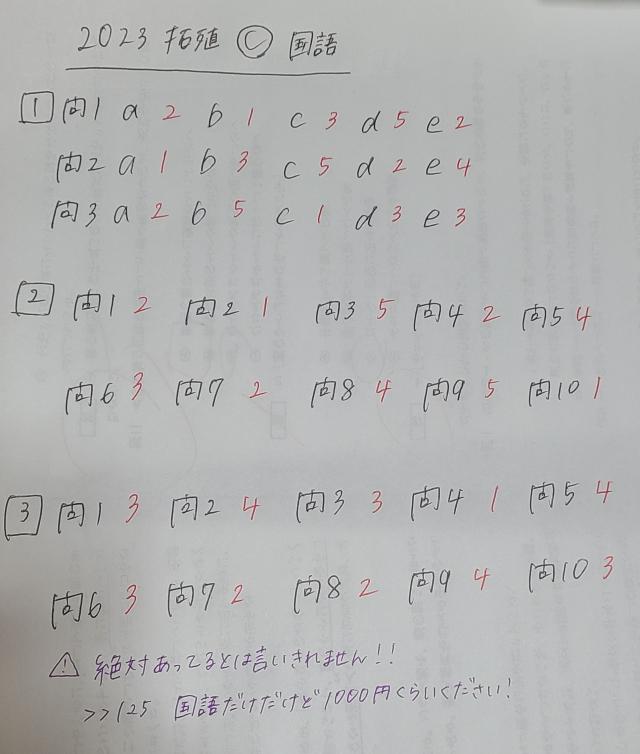 2023 拓殖 Ⓒ 国語
1 問1 a 2 b 1 c 3 d 5 e 2
問2 a 1 b 3 c 5 d 2 e 4
問3 a 2 b 5 c 1 d 3 e 3
2 問1 2 問2 1 問3 5 問4 2 問5 4
問6 3 問7 2 問8 4 問9 5 問10 1
3 問1 3 問2 4 問3 3 問4 1 問5 4
問6 3 問7 2 問8 2 問9 4 問10 3
⚠ 絶対あってるとは言いきれません!!
>>125 国語だけだけど1000円くらいください!